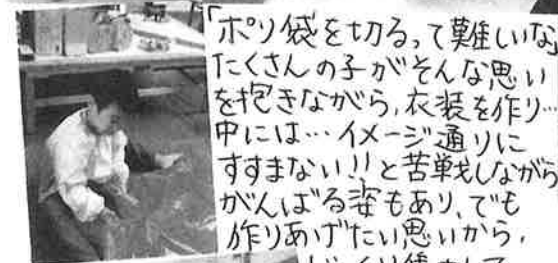 「ポリ袋を切るって難しいな
たくさんの子がそんな思い
を抱きながら、衣装を作り…
中には…イメージ通りに
すすまない!!と苦戦しながら
がんばる姿もあり、でも
作りあげたい思いから、